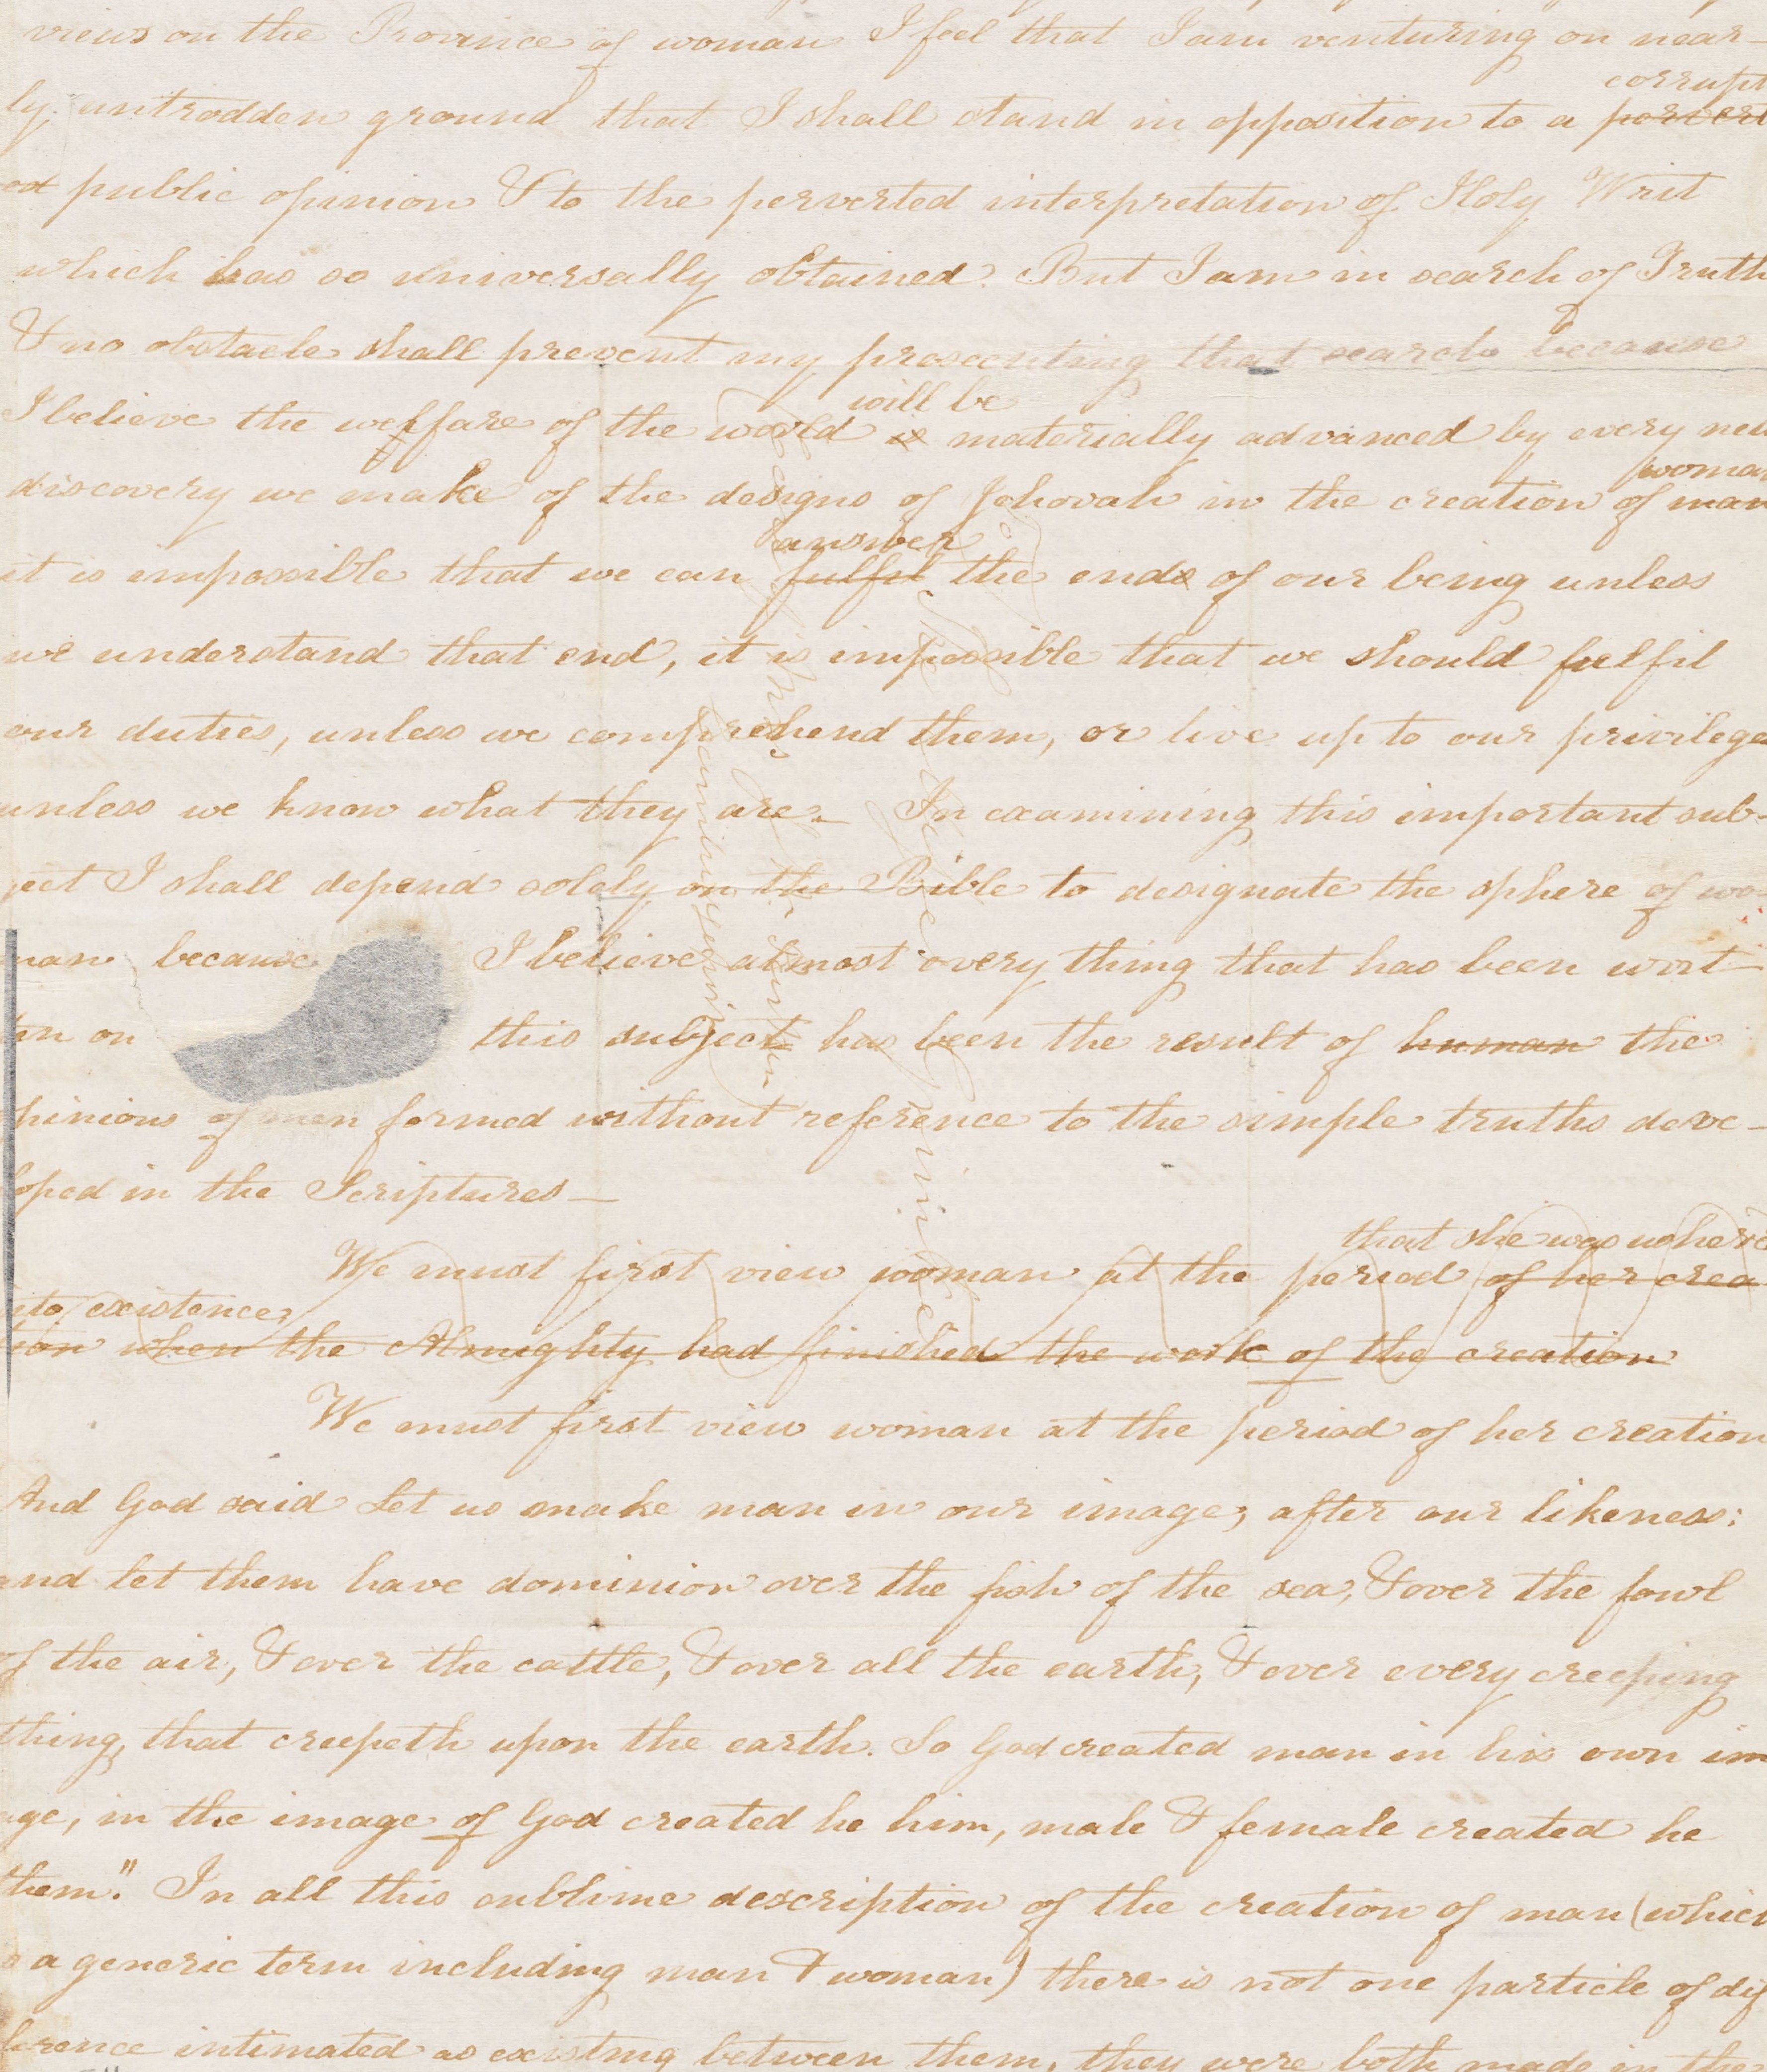 views on the Province of woman I feel that I am venturing on near-
corrupt
ly untrodden ground that I shall stand in opposition to a pervert
ed public opinion & to the perverted interpretation of Holy Writ
which has so universally obtained. But I am in search of Truth
& no obstacle shall prevent my prosecuting that search because
will be
I believe the welfare of the world is materially advanced by every new
woman
discovery we make of the designs of Jehovah in the creation of man
answer
it is impossible that we can fulfil the ends of our being unless
we understand that end, it is impossible that we should fulfil
our duties, unless we comprehend them, or live up to our privileges
unless we know what they are. In examining this important sub-
ject I shall depend solely on the Bible to designate the sphere of wo
man because I believe almost every thing that has been writ-
ten on this subject has been the result of human the
opinions of men formed without reference to the simple truths deve-
loped in the Scriptures—
that she was ushered
We must first view woman at the period of her crea
into existence,
tion when the Almighty had finished the work of the creation
We must first view woman at the period of her creation
And God said Let us make man in our image, after our likeness:
and let them have dominion over the fish of the sea, & over the fowl
of the air, & over the cattle, & over all the earth, & over every creeping
thing, that creepeth upon the earth. So God created man in his own im
age, in the image of God created he him, male & female created he
them." In all this sublime description of the creation of man (which
is a generic term including man & woman) there is not one particle of dif
ference intimated as existing between them, they were both made in the